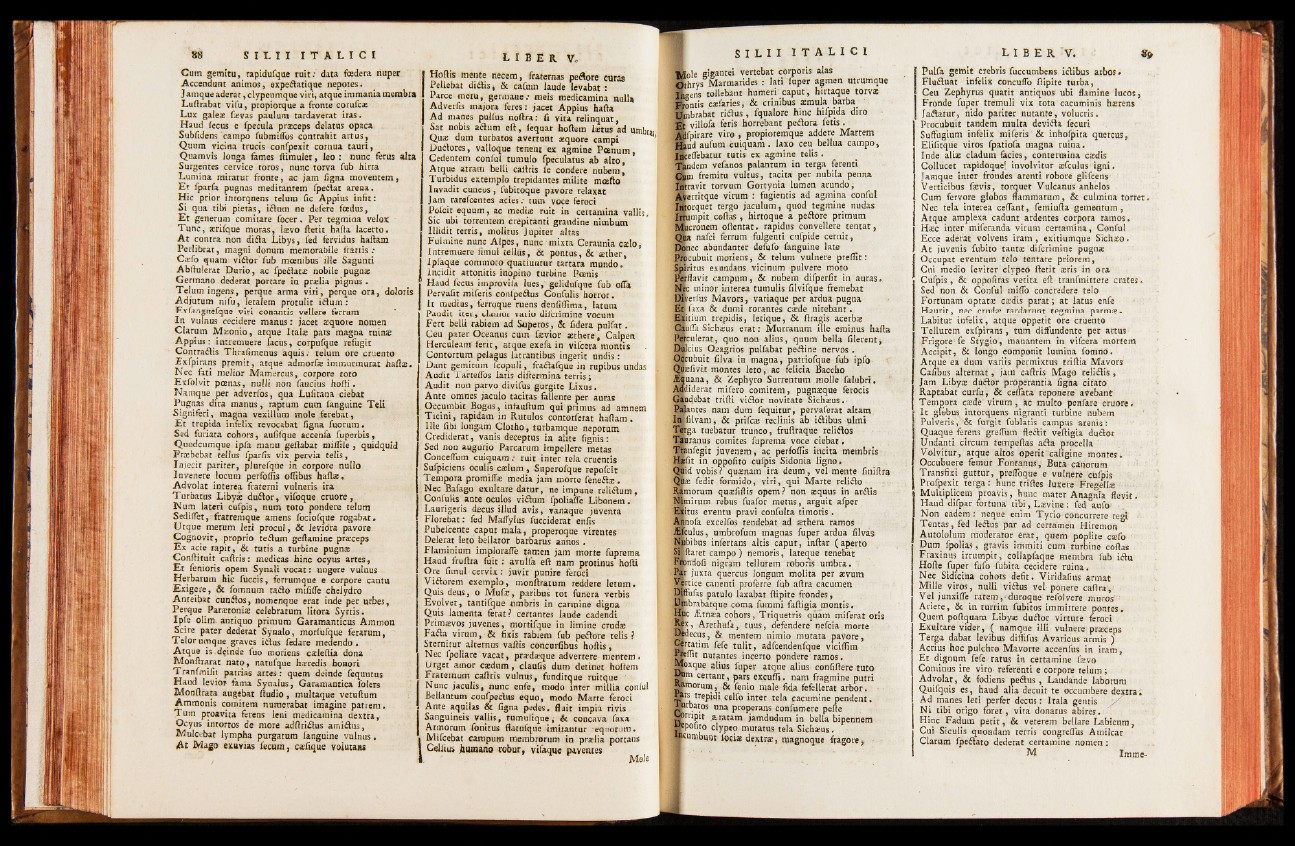 88 SILII ITALICI
Cum gemitu, rapiduſque ruit: data fœdera nuper
Accendunt animos, expectatique nepotes.
Jamque aderat, clypeumque viri, atque immania membra
Luſtrabat viſu, propiorque a fronte coruſcæ
Lux galeæ ſævas paulum tardaverat iras.
Haud ſecus e ſpecula præceps delatus opaca
Subſidens campo ſubmiſſos contrahit artus,
Quum vicina trucis conſpexit cornua tauri,
Quamvis longa fames ſtimulet, leo: nunc ſetus alta
Surgentes cervice toros, nunc torva ſub hirta
Lumina miratur fronte, ac jam ſigna moventem,
Et ſparſa pugnas meditantem ſpectat arena.
Hic prior intorquens telum ſic Appius inſit:
Si qua tibi pietas, ictum ne deſere fœdus,
Et generum comitare ſocer. Per tegmina velox
Tunc, æriſque moras, lævo ſtetit haſta lacerto.
At contra non dicta Libys, ſed fervidus haſtam
Perlibrat, magni donum memorabile fratris:
Cæſo quam victor ſub mœnibus ille Sagunti
Abſtulerat Durio, ac ſpectatæ nobile pugnæ
Germano dederat portare in prælia pignus.
Telum ingens, perque arma viri, perque ora, doloris
Adjutum niſu, letalem protulit ictum:
Exſangueſque viri conantis vellere ferrum
In vulnus cecidere manus: jacet æquore nomen
Clarum Mæonio, atque Italæ pars magna ruinæ
Appius: intremuere lacus, corpuſque refugit
Contractis Thraſimenus aquis: telum ore cruento
Exſpirans premit, atque admorſæ immurmurat haſtæ.
Nec fati melior Mamercus, corpore toto
Exſolvit pœnas, nulli non ſaucius hoſti.
Namque per adverſos, qua Luſitana ciebat
Pugnas dira manus, raptum cum ſanguine Teli
Signiferi, magna vexillum mole ferebat,
Et trepida infelix revocabat ſigna ſuorum.
Sed furiata cohors, auſiſque accenſa ſuperbis,
Quodcumque ipſa manu geſtabat miſſile, quidquid
Præbebat tellus ſparſis vix pervia telis,
Injecit pariter, plureſque in corpore nullo
Invenere locum perfoſſis oſſibus haſtæ.
Advolat interea fraterni vulneris ira
Turbatus Libyæ ductor, viſoque cruore,
Num lateri cuſpis, num toto pondere telum
Sediſſet, fratremque amens ſocioſque rogabat.
Utque metum leti procul, & leviora pavore
Cognovit, proprio tectum geſtamine præceps
Ex acie rapit, & tutis a turbine pugnæ
Conſtituit caſtris: medicas hinc ocyus artes,
Et ſenioris opem Synali vocat: ungere vulnus
Herbarum hic ſuccis, ferrumque e corpore cantu
Exigere, & ſomnum tacto miſiſſe chelydro
Anteibat cunctos, nomenque erat inde per urbes,
Perque Parætoniæ celebratum litora Syrtis.
Ipſe olim antiquo primum Garamanticus Ammon
Scire pater dederat Synalo, morſuſque ferarum,
Telorumque graves ictus ſedare medendo.
Atque is deinde ſuo moriens cæleſtia dona
Monſtrarat nato, natuſque hæredis honori
Tranſmiſit patrias artes: quem deinde ſequutus
Haud levior fama Synalus, Garamantica ſolers
Monſtrata augebat ſtudio, multaque vetuſtum
Ammonis comitem numerabat imagine patrem.
Tum proavita ferens leni medicamina dextra,
Ocyus intortos de more adſtrictus amictus,
Mulcebat lympha purgatum ſanguine vulnus.
At Mago exuvias ſecum, cæſique volutans
LIBER V.
Hoſtis mente necem, fraternas pectore curas
Pellebat dictis, & caſum laude levabat:
Parce metu, germane: meis medicamina nulla
Adverſis majora feres: jacet Appius haſta
Ad manes pulſus noſtra: ſi vita relinquat,
Sat nobis actum eſt, ſequar hoſtem lætus ad umbras.
Quæ dum turbatos avertunt æquore campi
Ductores, valloque tenent ex agmine Pœnum,
Cedentem conſul tumulo ſpeculatus ab alto,
Atque atram belli caſtris ſe condere nubem,
Turbidus extemplo trepidantes milite mœſto
Invadit cuneos, ſubitoque pavore relaxat
Jam rareſcentes acies: tum voce feroci
Poſcit equum, ac mediæ ruit in certamina vallis.
Sic ubi torrentem crepitanti grandine nimbum
Illidit terris, molitus Jupiter altas
Fulmine nunc Alpes, nunc mixta Ceraunia cælo,
Intremuere ſimul tellus, & pontus, & æther,
Ipſaque commoto quatiuntur tartara mundo.
Incidit attonitis inopino turbine Pœnis
Haud ſecus improviſa lues, geliduſque ſub oſſa
Pervaſit miſeris conſpectus Conſulis horror.
It medius, ferroque ruens denſiſſima, latum
Pandit iter, clamor vario diſcrimine vocum
Fert belli rabiem ad Superos, & ſidera pulſat.
Ceu pater Oceanus cum ſævior æthere, Calpen
Herculeam ferit, atque exeſa in viſcera montis
Contortum pelagus latrantibus ingerit undis:
Dant gemitum ſcopuli, fractaſque in rupibus undas
Audit Tarteſſos latis diſtermina terris;
Audit non parvo diviſus gurgite Lixus.
Ante omnes jaculo tacitas fallente per auras
Occumbit Bogus, infauſtum qui primus ad amnem
Ticini, rapidam in Rutulos contorſerat haſtam.
Ille ſibi longam Clotho, turbamque nepotum
Crediderat, vanis deceptus in alite ſignis:
Sed non augurio Parcarum impellere metas
Conceſſum cuiquam: ruit inter tela cruentis
Suſpiciens oculis cælum, Superoſque repoſcit
Tempora promiſſæ media jam morte ſenectæ.
Nec Bagaſo exultare datur, ne impune relictum,
Conſulis ante oculos victum ſpoliaſſe Libonem.
Laurigeris decus illud avis, vanaque juventa
Florebat: ſed Maſſylus ſucciderat enſis
Pubeſcente caput mala, properoque virentes
Delerat leto bellator barbarus annos.
Flaminium imploraſſe tamen jam morte ſuprema
Haud fruſtra fuit: avulſa eſt nam protinus hoſti
Ore ſimul cervix: juvit punire feroci
Victorem exemplo, monſtratum reddere letum.
Quis deus, o Muſæ, paribus tot funera verbis
Evolvet, tantiſque umbris in carmine digna
Quis lamenta ferat? certantes laude cadendi
Primævos juvenes, mortiſque in limine crudæ
Facta virum, & fixis rabiem ſub pectore telis?
Sternitur alternus vaſtis concurſibus hoſtis,
Nec ſpoliare vacat, prædæque advertere mentem.
Urget amor cædum, clauſis dum detinet hoſtem
Fraternum caſtris vulnus, funditque ruitque
Nunc jaculis, nunc enſe, modo inter millia conſul
Bellantum conſpectus equo, modo Marte feroci
Ante aquilas & ſigna pedes. fluit impia rivis
Sanguineis vallis, tumulique, & concava ſaxa
Armorum ſonitus flatuſque imitantur equorum.
Miſcebat campum membrorum in prælia portans
Celſius humano robur, viſaque paventes
Mole
SILII ITALICI
Mole gigantei vertebat corporis alas
Othrys Marmarides: lati ſuper agmen utrumque
Ingens tollebant humeri caput, hirtaque torvæ
Frontis cæſaries, & crinibus æmula barba
Umbrabat rictus, ſqualore hinc hiſpida diro
Et villoſa feris horrebant pectora ſetis.
Adſpirare viro, propioremque addere Martem
Haud auſum cuiquam. laxo ceu bellua campo,
Inceſſebatur tutis ex agmine telis.
Tandem veſanos palantum in terga ferenti
Cum fremitu vultus, tacita per nubila penna
Intravit torvum Gortynia lumen arundo,
Avertitque virum: fugientis ad agmina conſul
Intorquet tergo jaculum, quod tegmine nudas
Irrumpit coſtas, hirtoque a pectore primum
Mucronem oſtentat. rapidus convellere tentat,
Qua naſci ferrum fulgenti cuſpide cernit,
Donec abundanter defuſo ſanguine late
Procubuit moriens, & telum vulnere preſſit:
Spiritus exundans vicinum pulvere moto
Perflavit campum, & nubem diſperſit in auras.
Nec minor interea tumulis ſilviſque fremebat
Diverſus Mavors, variaque per ardua pugna
Et ſaxa & dumi rorantes cæde nitebant.
Exitium trepidis, letique, & ſtragis acerbæ
Cauſſa Sichæus erat: Murranum ille eminus haſta
Perculerat, quo non alius, quum bella ſilerent,
Dulcius Oeagrios pulſabat pectine nervos.
Occubuit ſilva in magna, patrioſque ſub ipſo
Quæſivit montes leto, ac felicia Baccho
Æquana, & Zephyro Surrentum molle ſalubri.
Addiderat miſero comitem, pugnæque ferocis
Gaudebat triſti victor novitate Sichæus.
Palantes nam dum ſequitur, pervaſerat altam
In ſilvam, & priſcæ reclinis ab ictibus ulmi
Terga tuebatur trunco, fruſtraque relictos
Tauranus comites ſuprema voce ciebat.
Tranſegit juvenem, ac perfoſſis incita membris
Hæſit in oppoſito cuſpis Sidonia ligno.
Quid vobis? quænam ira deum, vel mente ſiniſtra
Quæ ſedit formido, viri, qui Marte relicto
Ramorum quæſiſtis opem? non æquus in arctis
Nimirum rebus ſuaſor metus, arguit aſper
Exitus eventu pravi conſulta timotis.
Annoſa excelſos tendebat ad æthera ramos
Æſculus, umbroſum magnas ſuper ardua ſilvas
Nubibus inſertans altis caput, inſtar (aperto
Si ſtaret campo) nemoris, lateque tenebat
Frondoſi nigram tellurem roboris umbra.
Par juxta quercus longum molita per ævum
Vertice canenti proferre ſub aſtra cacumen
Diffuſas patulo laxabat ſtipite frondes,
Umbrabatque coma ſummi faſtigia montis.
Huc Ætnæa cohors, Triquetris quam miſerat oris
Rex, Arethuſa, tuus, defendere neſcia morte
Dedecus, & mentem nimio mutata pavore,
Certatim ſeſe tulit, adſcendenſque viciſſim
Preſſit nutantes incerto pondere ramos.
Moxque alius ſuper atque alius conſiſtere tuto
Dum certant, pars excuſſi. nam fragmine putri
Ramorum, & ſenio male fida fefellerat arbor.
Pars trepidi celſo inter tela cacumine pendent.
Turbatos una properans conſumere peſte
Corripit æratam jamdudum in bella bipennem
Depoſito clypeo mutatus tela Sichæus.
Incumbunt ſociæ dextræ, magnoque fragore,
LIBER V. 89
Pulſa gemit crebris ſuccumbens ictibus arbos.
Fluctuat infelix concuſſo ſtipite turba,
Ceu Zephyrus quatit antiquos ubi flamine lucos,
Fronde ſuper tremuli vix tota cacuminis hærens
Jactatur, nido pariter nutante, volucris.
Procubuit tandem multa devicta ſecuri
Suffugium infelix miſeris & inhoſpita quercus,
Eliſitque viros ſpatioſa magna ruina.
Inde aliæ cladum facies, contermina cædis
Collucet rapidoque! involvitur æſculus igni.
Jamque inter frondes arenti robore gliſcens
Verticibus ſævis, torquet Vulcanus anhelos
Cum fervore globos flammarum, & culmina torret.
Nec tela interea ceſſant, ſemiuſta gementum,
Atque amplexa cadunt ardentes corpora ramos.
Hæc inter miſeranda virum certamina, Conſul
Ecce aderat volvens iram, exitiumque Sichæo.
At juvenis ſubito tantæ diſcrimine pugnæ
Occupat eventum telo tentare priorem,
Cui medio leviter clypeo ſtetit æris in ora
Cuſpis, & oppoſitas vetita eſt tranſmittere crates.
Sed non & Conſul miſſo concredere telo
Fortunam optatæ cædis parat; at latus enſe
Haurit, nec crudæ tardarunt tegmina parmæ.
Labitur infelix, atque appetit ore cruento
Tellurem exſpirans, tum diffundente per artus
Frigore ſe Stygio, manantem in viſcera mortem
Accipit, & longo componit lumina ſomno.
Atque ea dum variis permixtus triſtia Mavors
Caſibus alternat, jam caſtris Mago relictis,
Jam Libyæ ductor properantia ſigna citato
Raptabat curſu, & ceſſata reponere avebant
Tempora cæde virum, ac multo penſare cruore.
It globus intorquens nigranti turbine nubem
Pulveris, & ſurgit ſublatis campus arenis:
Quaque ferens greſſum flectit veſtigia ductor
Undanti circum tempeſtas acta procella
Volvitur, atque altos operit caligine montes.
Occubuere femur Fontanus, Buta canorum
Transfixi guttur, preſſoque e vulnere cuſpis
Proſpexit terga: hunc triſtes luxere Fregellæ
Multiplicem proavis, hunc mater Anagnia flevit.
Haud diſpar fortuna tibi, Lævine: ſed auſo
Non eadem: neque enim Tyrio concurrere regi
Tentas, ſed lectus par ad certamen Hiremon
Autololum moderator erat, quem poplite cæſo
Dum ſpolias, gravis immiti cum turbine coſtas
Fraxinus irrumpit, collapſaque membra ſub ictu
Hoſte ſuper fuſo ſubita cecidere ruina.
Nec Sidicina cohors defit. Viridaſius armat
Mille viros, nulli victus vel ponere caſtra,
Vel junxiſſe ratem, duroque reſolvere muros
Ariete, & in turrim ſubitos immittere pontes.
Quem poſtquam Libyæ ductor virtute feroci
Exultare videt, (namque illi vulnere præceps
Terga dabat levibus diffiſus Avaricus armis)
Acrius hoc pulchro Mavorte accenſus in iram,
Et dignum ſeſe ratus in certamine ſævo
Cominus ire viro referenti e corpore telum;
Advolat, & fodiens pectus, Laudande laborum
Quiſquis es, haud alia decuit te occumbere dextra.
Ad manes leti perfer decus: Itala gentis
Ni tibi origo foret, vita donatus abires.
Hinc Fadum petit, & veterem bellare Labicum,
Cui Siculis quondam terris congreſſus Amilcar
Clarum ſpectato dederat certamine nomen:
M Imme-